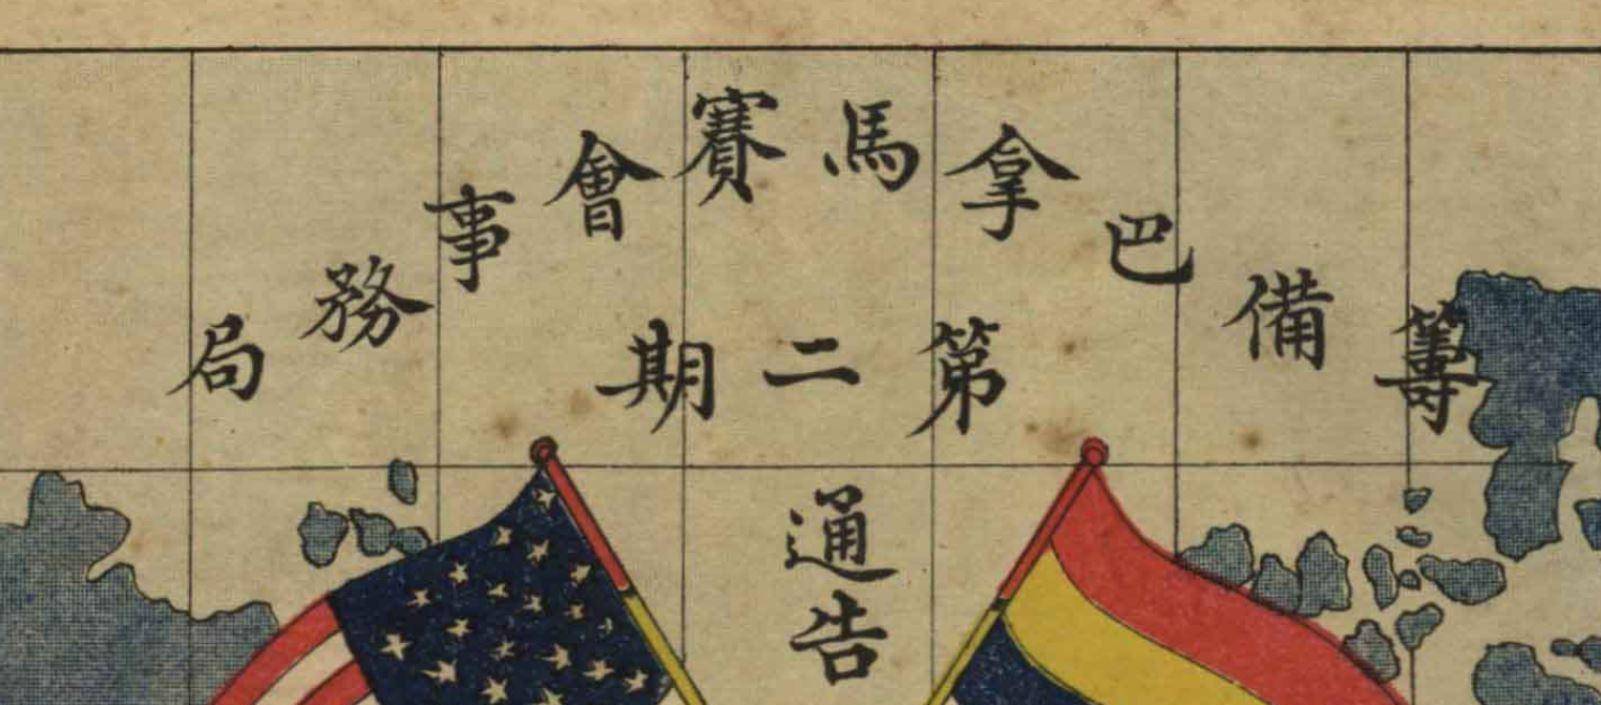 籌備巴拿馬賽會事務局
第二期
通告